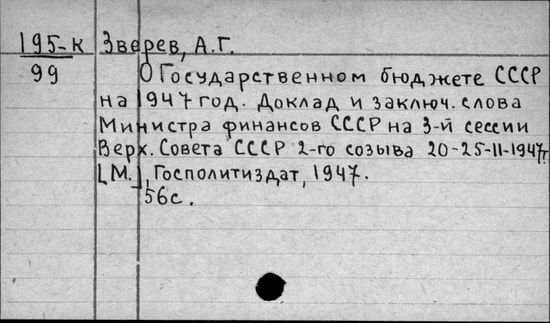 195-К Зверев, А.Г.
99 О Государственном бюджете СССР
на 1947 год. Доклад и заключ. слова
Министра финансов СССР на 3-й сессии
Верх. Совета СССР 2-го созыва 20-25-II-1947г.
[М.], Госполитиздат, 1947.
56с.